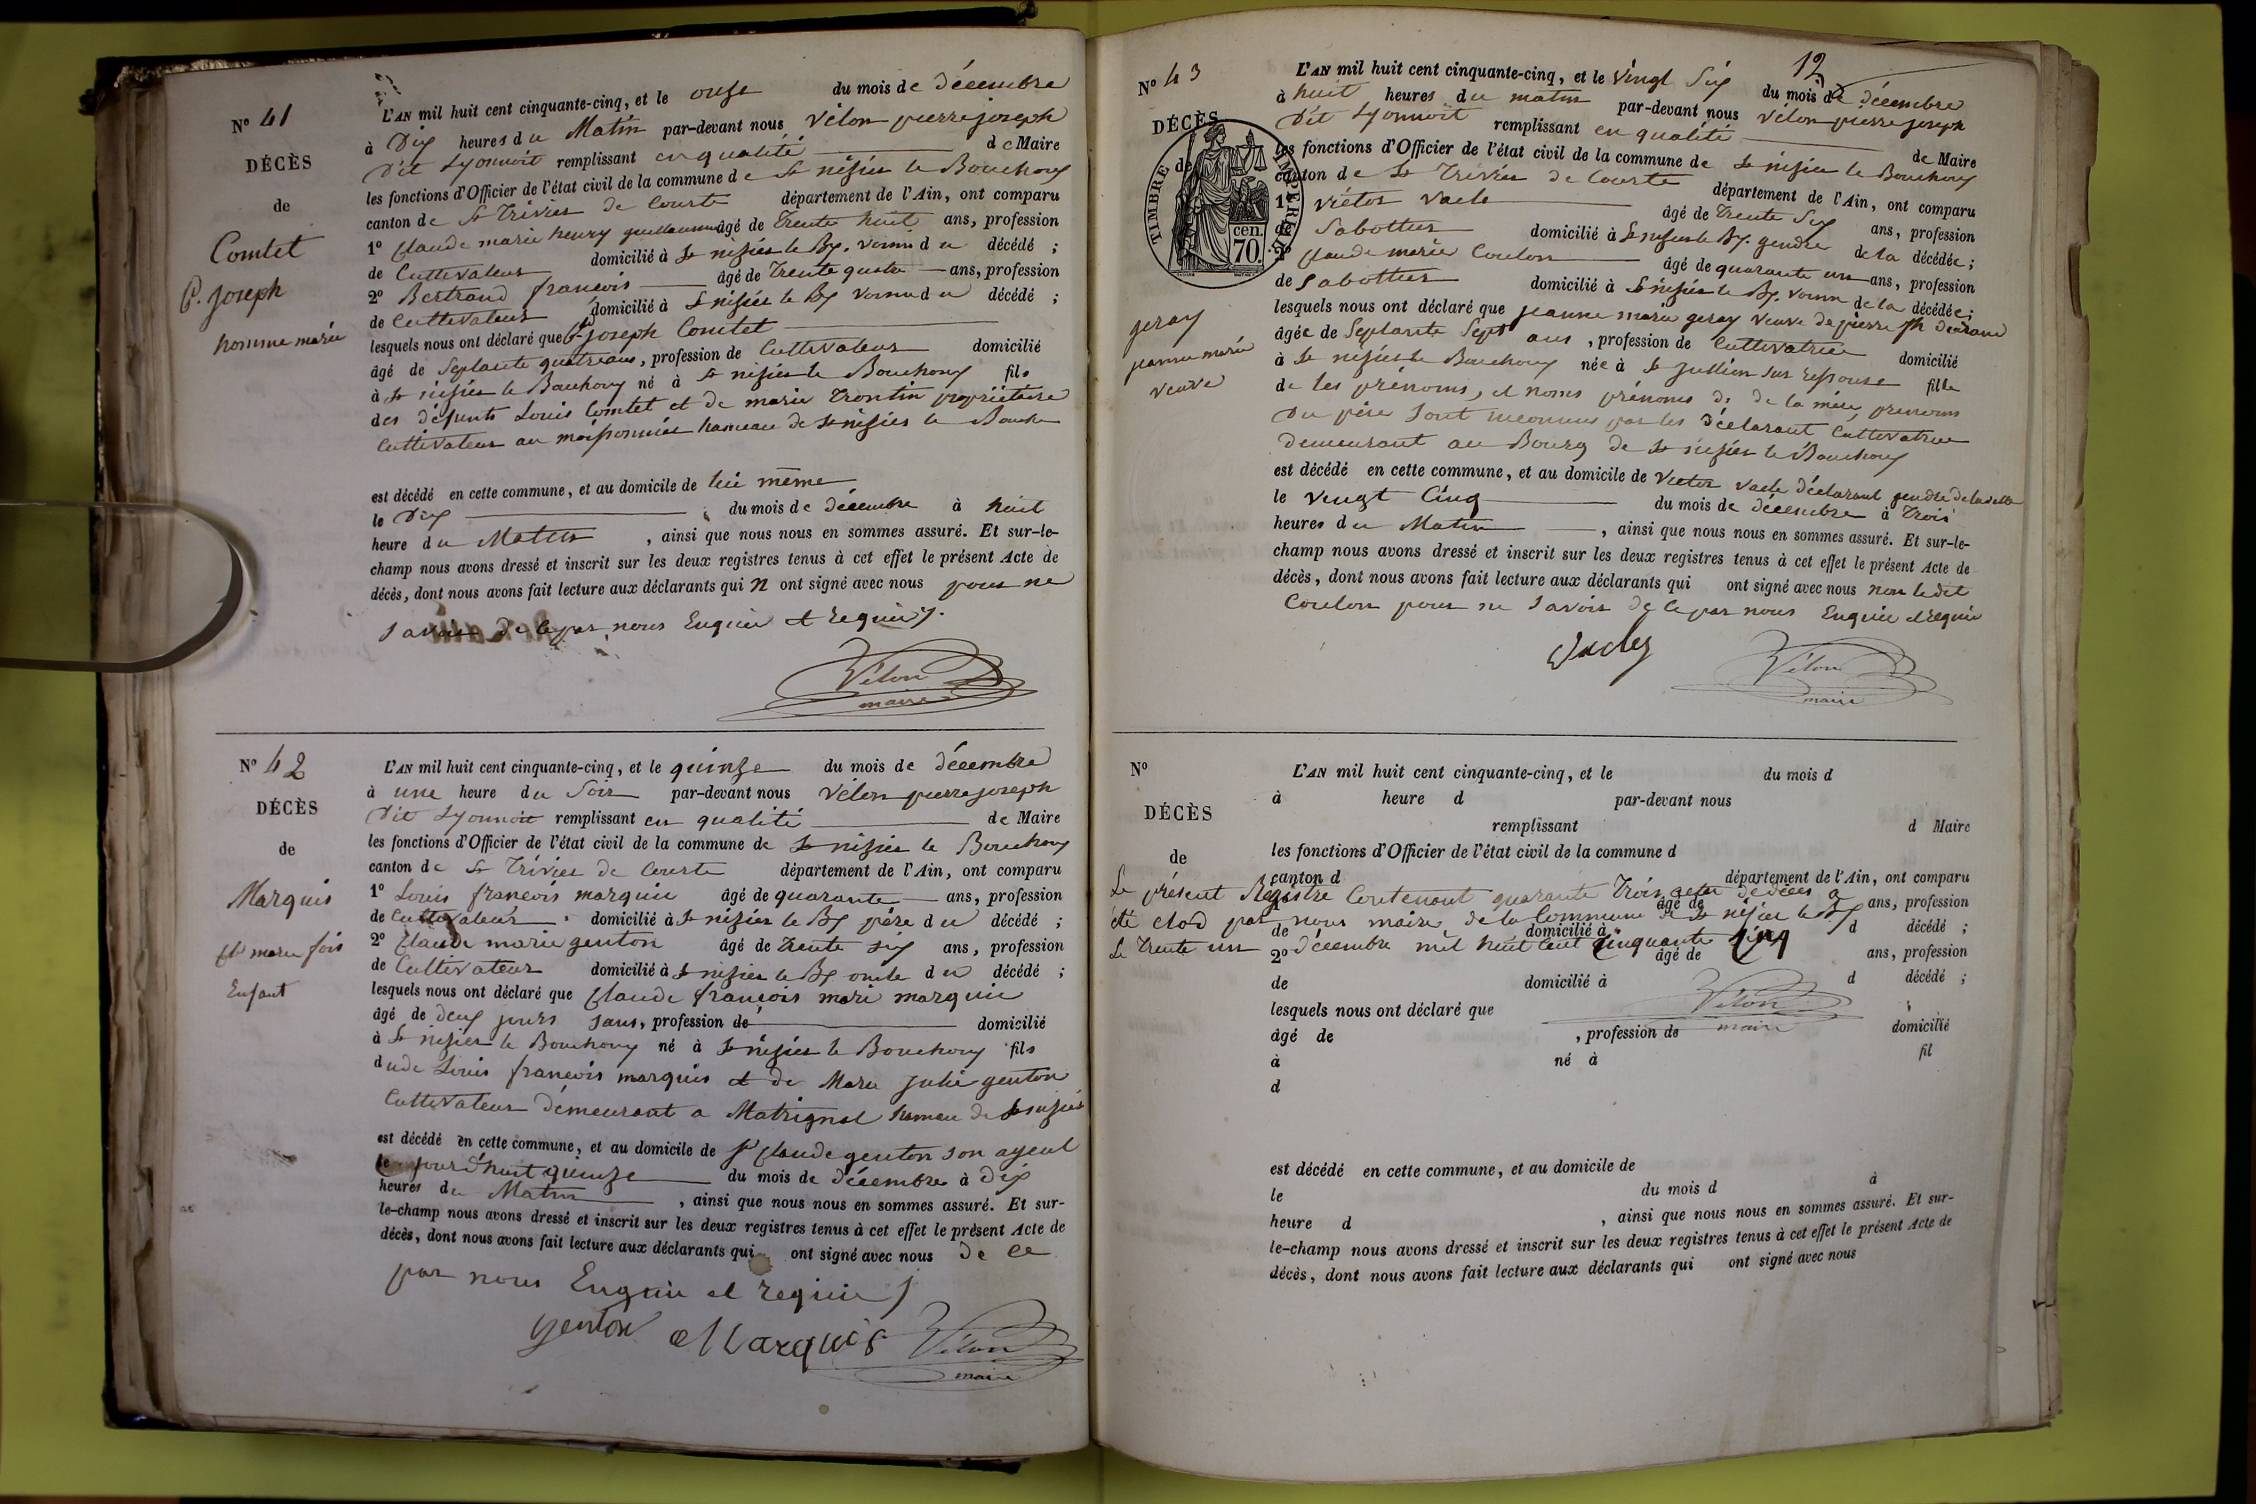 N° 41
DÉCÈS
de
Comtet
P. Joseph
homme marié
L'AN mil huit cent cinquante-cinq, et le onze du mois de décembre
à Dix heures du Matin par-devant nous Vélon pierre joseph
Dit Lyonnoit remplissant en qualité de Maire
les fonctions d'Officier de l'état civil de la commune de St nisier le Bouchoux
canton de St Trivier de Courte département de l'Ain, ont comparu
1° Claude marie heury guillaume âgé de Trente huit ans, profession
de Cultivateur domicilié à St nizier le Bx. voisin du décédé ;
2° Bertrand francois âgé de Trente quatre ans, profession
de Cultivateur domicilié à St nisier le Bx voisin du décédé ;
lesquels nous ont déclaré que P. Joseph Comtet
âgé de Septante quatre ans, profession de Cultivateur domicilié
à St nisier le Bouchoux né à St nisier le Bouchoux fils
des défunts Louis Comtet et de marie Trontin propriétaire
Cultivateur au moissonnier hameau de St nisier le Bouch
est décédé en cette commune, et au domicile de lui même
le Dix du mois de décembre à huit
heure du Matin , ainsi que nous nous en sommes assuré. Et sur-le-
champ nous avons dressé et inscrit sur les deux registres tenus à cet effet le présent Acte de
décès, dont nous avons fait lecture aux déclarants qui n ont signé avec nous pour ne
savoir de ce par nous Enquier et requier.
Vélon
maire
N° 42
DÉCÈS
de
Marquis
Cl marie fois
Enfant
L'AN mil huit cent cinquante-cinq, et le quinze du mois de décembre
à une heure du Soir par-devant nous Vélon pierre joseph
Dit Lyonnoit remplissant en qualité de Maire
les fonctions d'Officier de l'état civil de la commune de St nisier le Bouchoux
canton de St Trivier de Courte département de l'Ain, ont comparu
1° Louis francois marquis âgé de quarante ans, profession
de Cultivateur domicilié à St nizier le Bx père du décédé ;
2° Claude marie genton âgé de Trente six ans, profession
de Cultivateur domicilié à St nizier le Bx oncle du décédé ;
lesquels nous ont déclaré que Claude francois marie marquis
âgé de deux jours sans, profession de domicilié
à St nisier le Bouchoux né à St nisier le Bouchoux fils
du de Louis francois marquis et de Marie Julie genton
Cultivateur demeurant a Matrignat hameau de St nisier
est décédé en cette commune, et au domicile de Sr Claude genton son ayeul
le jourd'huit quinze du mois de décembre à dix
heures du Matin , ainsi que nous nous en sommes assuré. Et sur-
le-champ nous avons dressé et inscrit sur les deux registres tenus à cet effet le présent Acte de
décès, dont nous avons fait lecture aux déclarants qui ont signé avec nous de ce
par nous Enquier et requier
genton Marquis Vélon
maire
12
N° 43
DÉCÈS
de
TIMBRE IMPÉRIAL
cen.
70.
geray
jeanne marie
veuve
L'AN mil huit cent cinquante-cinq, et le vingt Six du mois de décembre
à huit heures du matin par-devant nous Vélon pierre joseph
Dit Lyonnoit remplissant en qualité de Maire
les fonctions d'Officier de l'état civil de la commune de St nisier le Bouchoux
canton de St Trivier de Courte département de l'Ain, ont comparu
1° victor vacle âgé de Trente Six ans, profession
de Sabottier domicilié à St nisier le Bx. gendre de la décédée ;
2° Claude marie Coulon âgé de quarante un ans, profession
de Sabottier domicilié à St nisier le Bx. voisin de la décédée ;
lesquels nous ont déclaré que jeanne marie geray veuve de pierre jh durand
âgée de Septante Sept ans , profession de Cultivatrice domicilié
à St nisier le Bouchoux née à St Jullien sur ressouse fille
de les prénoms, et noms prénoms de de la mère, prenoms
Du père sont inconnus par les Déclarant Cultivatrice
demeurant au Bourg de St nisier le Bouchoux
est décédé en cette commune, et au domicile de Victor vacle déclarant gendre de la dette
le vingt Cinq du mois de décembre à Trois
heures du Matin , ainsi que nous nous en sommes assuré. Et sur-le-
champ nous avons dressé et inscrit sur les deux registres tenus à cet effet le présent Acte de
décès, dont nous avons fait lecture aux déclarants qui ont signé avec nous non ledit
Coulon pour ne savoir de ce par nous Enquier et requier
Vacle
Vélon
maire
N°
DÉCÈS
de
L'AN mil huit cent cinquante-cinq, et le du mois d
à heure d par-devant nous
remplissant d Maire
les fonctions d'Officier de l'état civil de la commune d
canton d département de l'Ain, ont comparu
Le présent Registre Contenant quarante Trois actes de décès a
1° âgé de ans, profession
été clos par nous maire de la Commune de St nisier le Bx
de domicilié à d décédé ;
Le Trente un décembre mil huit cent cinquante cinq
2° âgé de ans, profession
de domicilié à d décédé ;
Vélon
maire
lesquels nous ont déclaré que
âgé de , profession de domicilié
à né à fil
d
est décédé en cette commune, et au domicile de
le du mois d à
heure d , ainsi que nous nous en sommes assuré. Et sur-
le-champ nous avons dressé et inscrit sur les deux registres tenus à cet effet le présent Acte de
décès, dont nous avons fait lecture aux déclarants qui ont signé avec nous